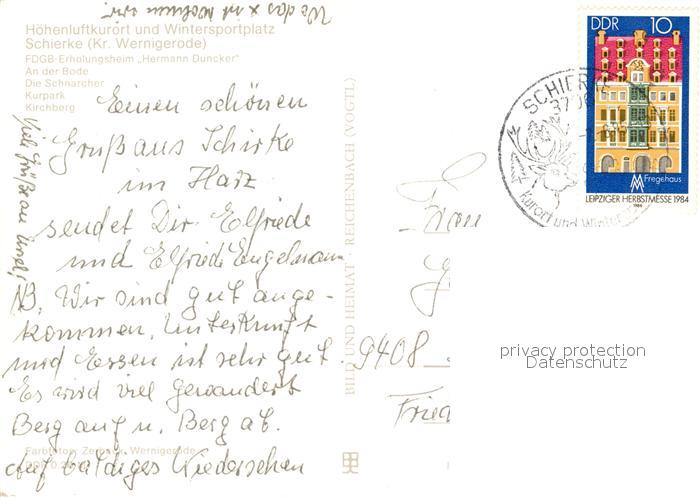 Wo das x ist wohnen wir.
Höhenluftkurort und Wintersportplatz
Schierke (Kr. Wernigerode)
FDGB-Erholungsheim „Hermann Duncker"
An der Bode
Die Schnarcher
Kurpark
Kirchberg
Einen schönen
Gruß aus Schirke
im Harz
sendet Dir Elfriede
und Elfriede Engelmann
NB. Wir sind gut ange-
kommen. Unterkunft
und Essen ist sehr gut.
Es wird viel gewandert
Berg auf u. Berg ab.
Auf baldiges Wiedersehen
Viele Grüße an
Farbfotos: Zerback, Wernigerode
BILD UND HEIMAT · REICHENBACH (VOGTL)
DDR 10
Fregehaus
LEIPZIGER HERBSTMESSE 1984
1984
SCHIERKE
3706
Kurort und Winter
Frau
9408
Fried
privacy protection
Datenschutz